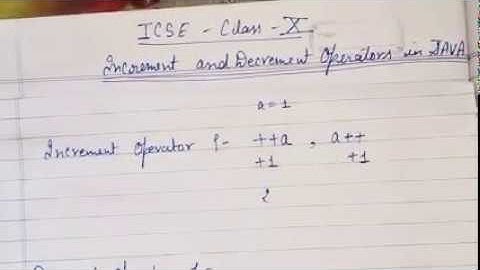 ICSE - Class - X
Increment and Decrement Operators in JAVA
a = 1
Increment Operator :- ++a , a++
+1 +1
2